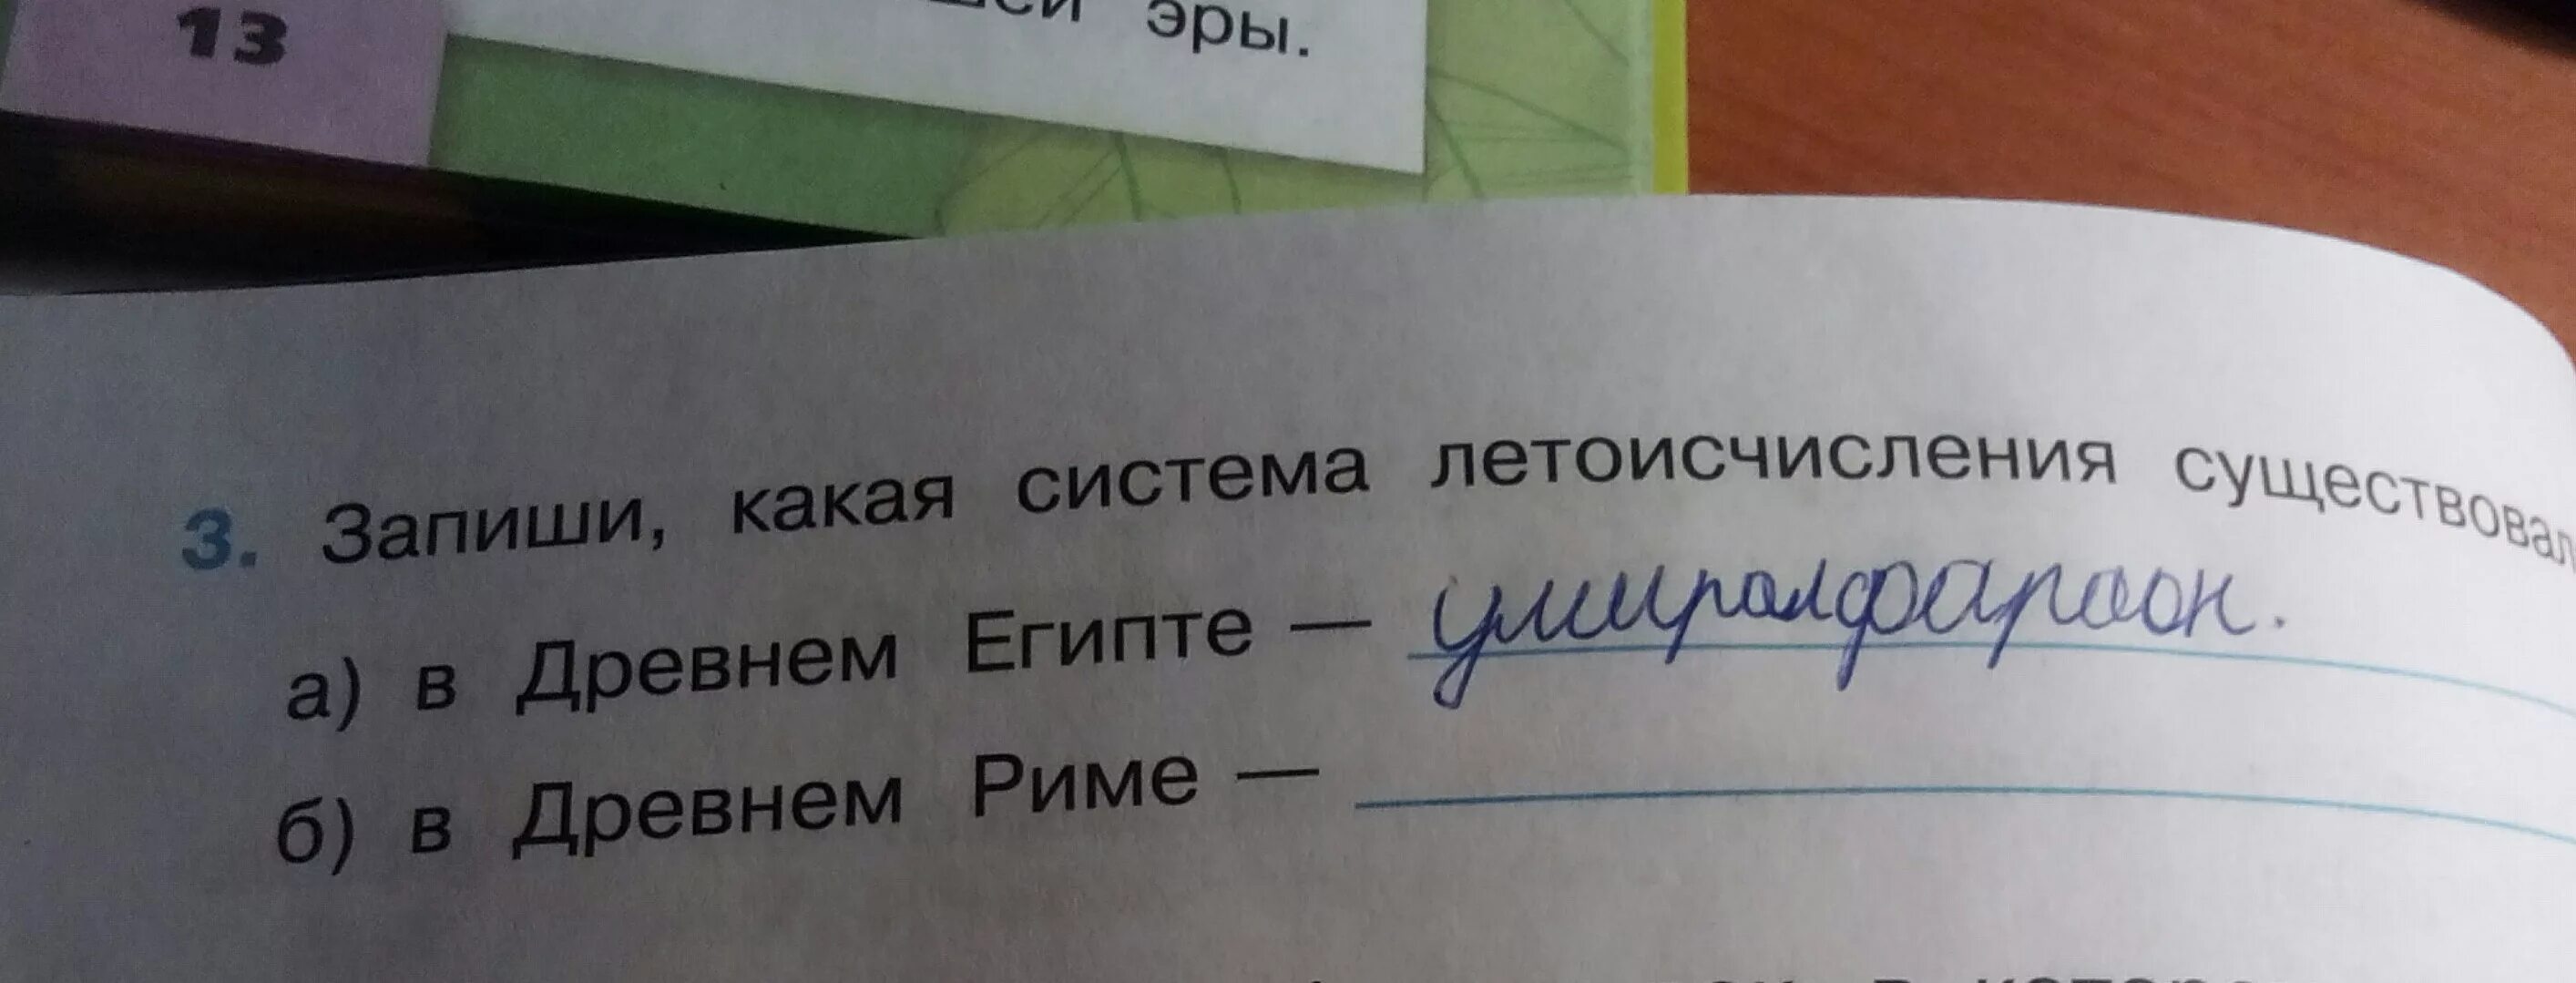 13
эры.
3. Запиши, какая система летоисчисления существовал
а) в Древнем Египте — умиралфараон.
б) в Древнем Риме —